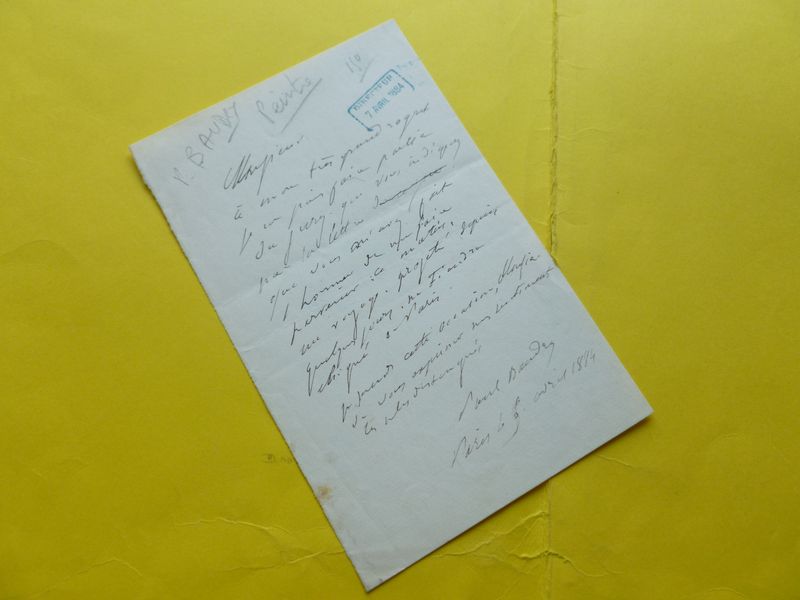 P. BAUDRY
Peintre
DIRECTEUR
7 AVRIL 1884
Monsieur
à mon très grand regret
je ne puis faire partie
du jury que vous indiquez
par la lettre
que vous m'avez fait
l'honneur de me faire
parvenir ce matin,
un voyage projeté depuis
quelques jours me tiendra
éloigné de Paris.
Je prends cette occasion, Monsieur
de vous exprimer mes sentiments
les plus distingués
Paul Baudry
Paris avril 1884